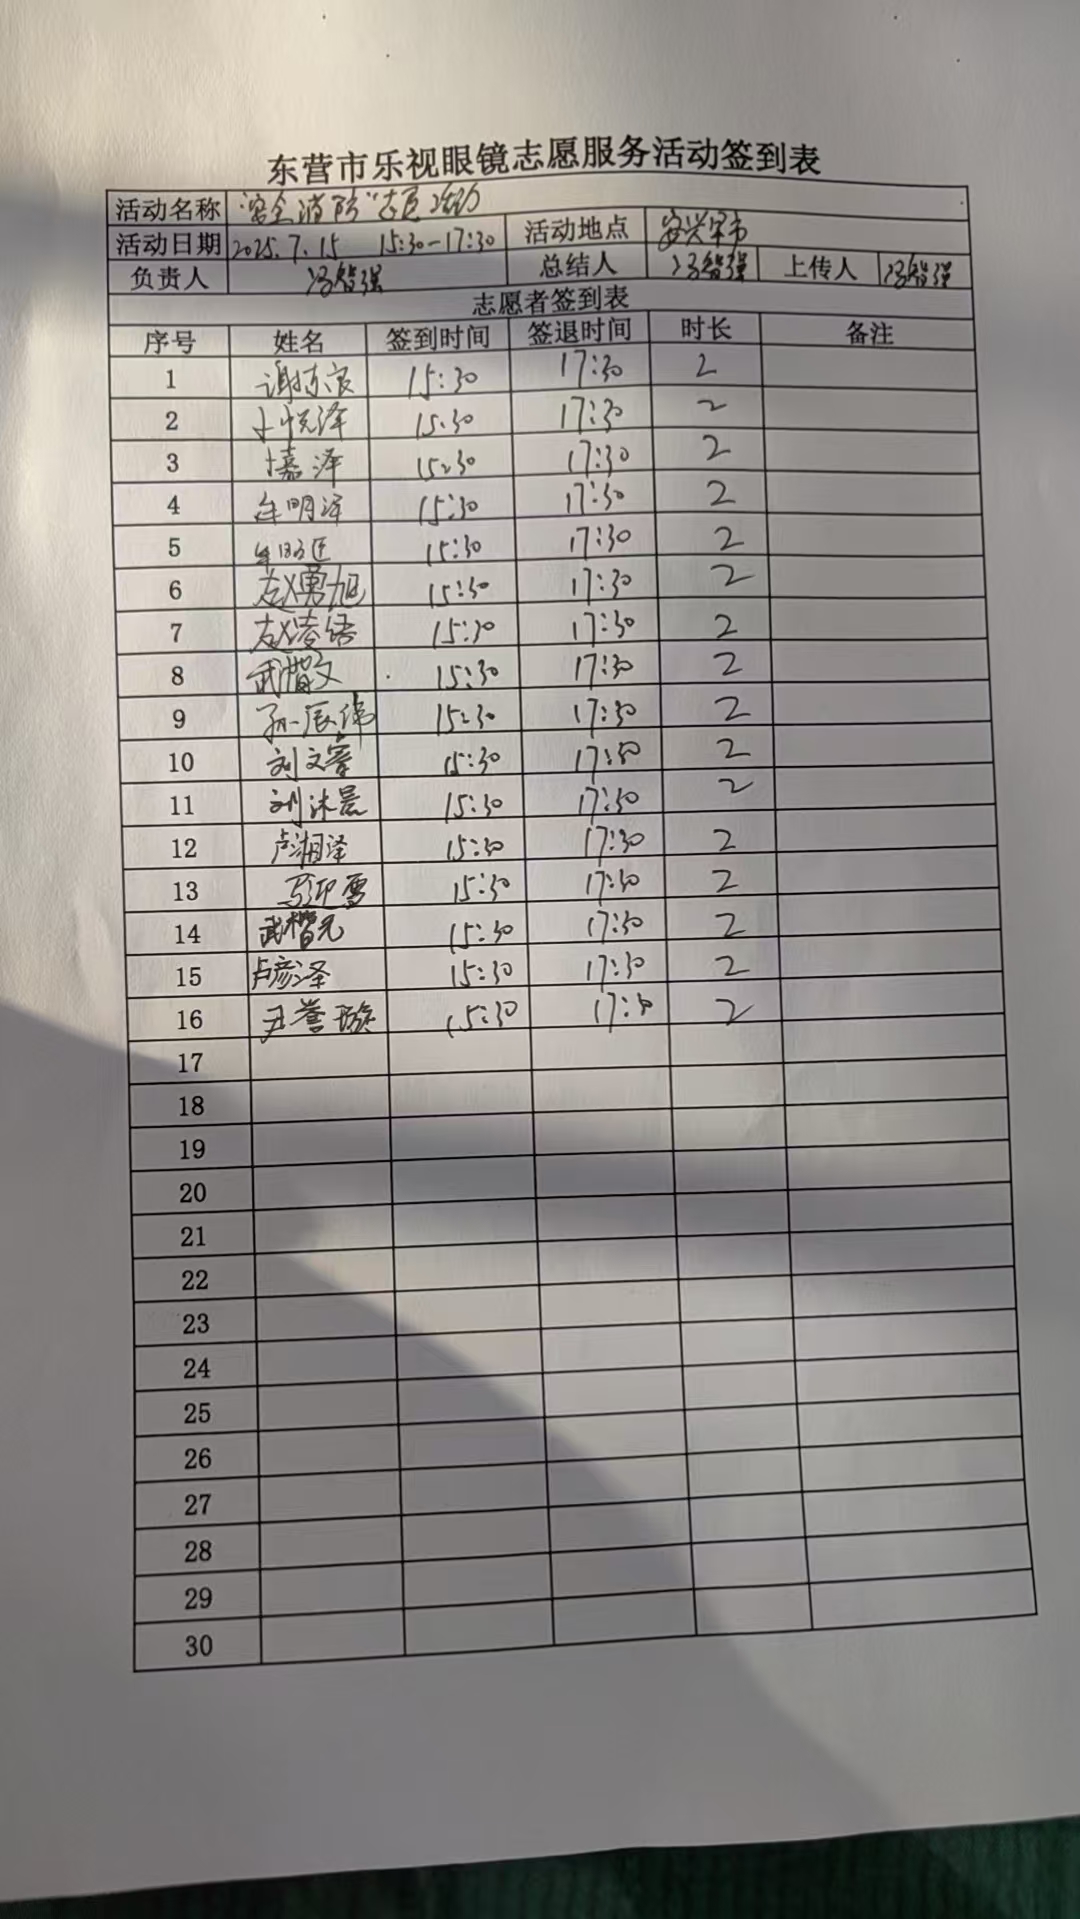 东营市乐视眼镜志愿服务活动签到表
活动名称 "安全消防"志愿活动
活动日期 2025.7.15 15:30-17:30 活动地点
负责人 冯智强 总结人 冯智强 上传人 冯智强
志愿者签到表
序号 姓名 签到时间 签退时间 时长 备注
1 15:30 17:30 2
2 卜悦泽 15:30 17:30 2
3 卜嘉泽 15:30 17:30 2
4 牟明泽 15:30 17:30 2
5 15:30 17:30 2
6 赵勇旭 15:30 17:30 2
7 赵凌语 15:30 17:30 2
8 15:30 17:30 2
9 15:30 17:30 2
10 刘文睿 15:30 17:30 2
11 刘沐晨 15:30 17:30 2
12 卢湘泽 15:30 17:30 2
13 马迎雪 15:30 17:30 2
14 15:30 17:30 2
15 卢彦泽 15:30 17:30 2
16 15:30 17:30 2
17
18
19
20
21
22
23
24
25
26
27
28
29
30